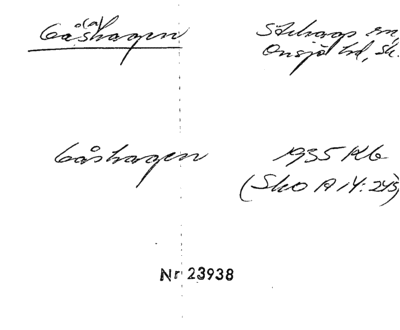 Gå(a)shagen
Stehags sn,
Onsjö hd, Sk.
Gåshagen
1935 Kb
(Sko A I 4: 245)
Nr 23938